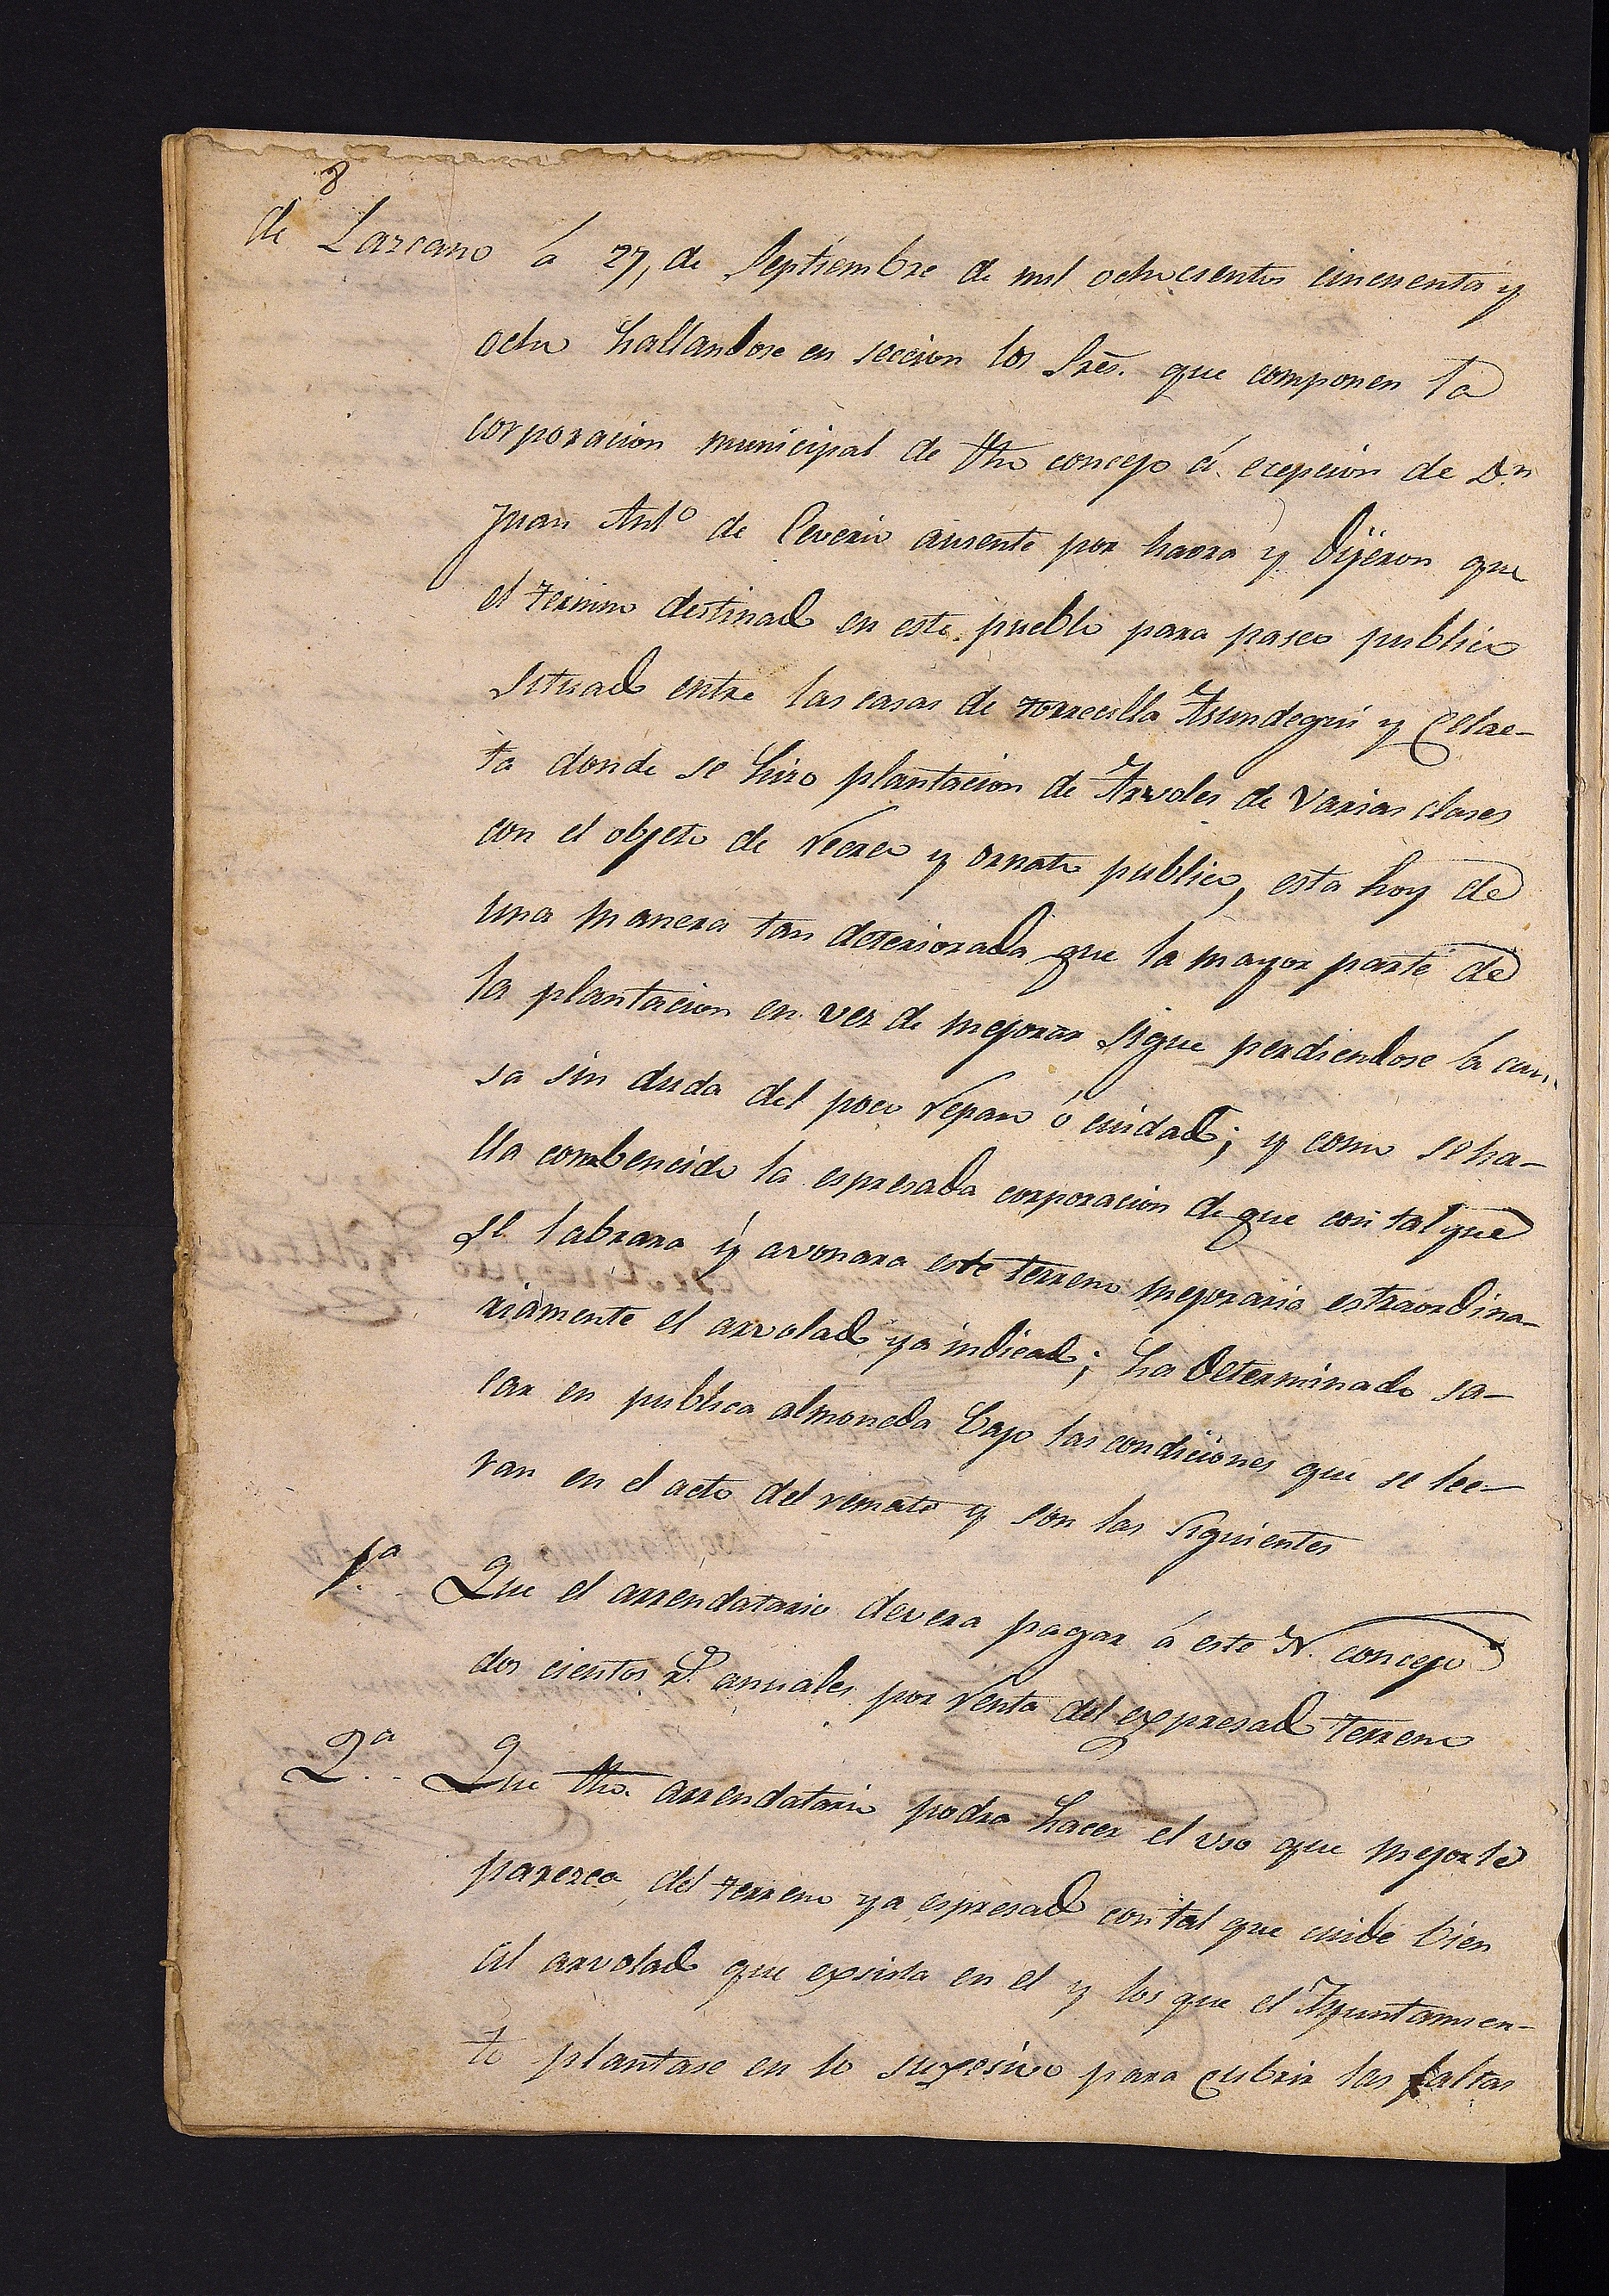 8
de Lazcano á 27, de Septiembre de mil ochocientos cincuenta y
ocho hallandose en seccion los Sres. que componen la
corporacion municipal de dho concejo á ecepcion de Dn
Juan Anto de ausente por haora y dijeron que
el termino destinado en este pueblo para paseo publico
situado entre las casas de torrecilla y
ta donde se hizo plantacion de Arvoles de varias clases
con el objeto de recreo y ornato publico, esta hoy de
una manera tan deteriorada que la mayor parte de
la plantacion en vez de mejorar sigue perdiendose la cau
sa sin duda del poco reparo ó cuidado; y como se ha-
lla combencido la espresada corporacion de que con tal que
se labrara y avonara este terreno mejoraria estraordina-
riamente el arvolado ya indicado; ha determinado sa-
car en publica almoneda bajo las condiciones que se lee-
ran en el acto del remate y son las siguientes
1.ª Que el arrendatario devera pagar á este N. concejo
dos cientos rs. anuales por renta del expresado terreno
2.ª Que dho. arrendatario podra hacer el uso que mejor le
parezca del terreno ya espresado con tal que cuide bien
al arvolado que exsista en el y los que el Ayuntamien-
to plantase en lo suxesivo para cubrir las faltas